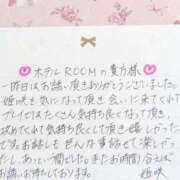 ホテルROOMの貴方様
昨日はお誘い頂きありがとうございました。
姫咲を気になって頂き会いに来てくれて
プレイではたくさん気持ち良くなって頂き、
攻めてくれて気持ち良くして頂き嬉しかったです
お話しもとても色んな事話せて楽しかっ
たし、あっという間でした。またお時間合えば
お誘いお待ちしております。
姫咲